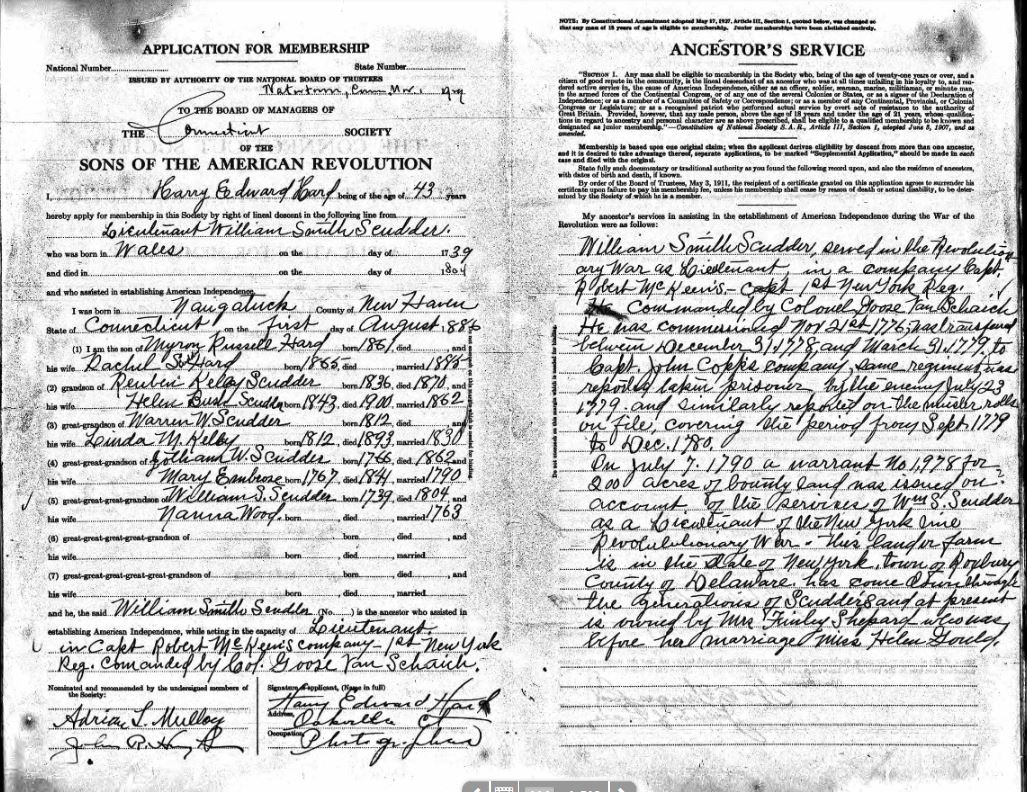 APPLICATION FOR MEMBERSHIP
National Number State Number
ISSUED BY AUTHORITY OF THE NATIONAL BOARD OF TRUSTEES
Conn. Nov. 1929
TO THE BOARD OF MANAGERS OF
THE Connecticut SOCIETY
OF THE
SONS OF THE AMERICAN REVOLUTION
I, Harry Edward Hard being of the age of 43 years
hereby apply for membership in this Society by right of lineal descent in the following line from
Lieutenant William Smith Scudder.
who was born in Wales on the day of 1739
and died in on the day of 1804
and who assisted in establishing American Independence.
I was born in Naugatuck County of New Haven
State of Connecticut on the first day of August, 1886
(1) I am the son of Myron Russell Hard born 1861, died , and
his wife Rachel S. Hard born 1865, died , married 1885
(2) grandson of Reuben Kelby Scudder born 1836, died 1870, and
his wife Helen Bush Scudder born 1843, died 1900, married 1862
(3) great-grandson of Warren W. Scudder born 1812, died , and
his wife Linda M. Kelby born 1812, died 1893, married 1830
(4) great-great-grandson of William W. Scudder born 1766, died 1862, and
his wife Mary born 1767, died 1841, married 1790
(5) great-great-great-grandson of William S. Scudder born 1739, died 1804, and
his wife Nanna Wood born , died , married 1763
(6) great-great-great-great-grandson of born , died , and
his wife born , died , married
(7) great-great-great-great-great-grandson of born , died , and
his wife born , died , married
and he, the said William Smith Scudder (No. ) is the ancestor who assisted in
establishing American Independence, while acting in the capacity of Lieutenant
in Capt Robert McKeen's company - 1st New York
Reg. Comanded by Col. Goose Van Schaich.
Nominated and recommended by the undersigned members of
the Society:
Adrian L. Mulloy
John R.
Signature of applicant, (Name in full)
Harry Edward Hard
Address, Oakville Ct
Occupation, Photographer
NOTE: By Constitutional Amendment adopted May 17, 1927, Article III, Section 1, quoted below, was changed so
that any man of 18 years of age is eligible to membership. Junior memberships have been abolished entirely.
ANCESTOR'S SERVICE
"SECTION 1. Any man shall be eligible to membership in the Society who, being of the age of twenty-one years or over, and a
citizen of good repute in the community, is the lineal descendant of an ancestor who was at all times unfailing in his loyalty to, and ren-
dered active service in, the cause of American Independence, either as an officer, soldier, seaman, marine, militiaman, or minute man,
in the armed forces of the Continental Congress, or of any one of the several Colonies or States, or as a signer of the Declaration of
Independence; or as a member of a Committee of Safety or Correspondence; or as a member of any Continental, Provincial, or Colonial
Congress or Legislature; or as a recognized patriot who performed actual service by overt acts of resistance to the authority of
Great Britain. Provided, however, that any male person, above the age of 18 years and under the age of 21 years, whose qualifica-
tions in regard to ancestry and personal character are as above prescribed, shall be eligible to qualified membership to be known and
designated as junior membership."—Constitution of National Society S. A. R., Article III, Section 1, adopted June 3, 1907, and as
amended.
Membership is based upon one original claim; when the applicant derives eligibility by descent from more than one ancestor,
and it is desired to take advantage thereof, separate applications, to be marked "Supplemental Application," should be made in each
case and filed with the original.
State fully such documentary or traditional authority as you found the following record upon, and also the residence of ancestors,
with dates of birth and death, if known.
By order of the Board of Trustees, May 3, 1911, the recipient of a certificate granted on this application agrees to surrender his
certificate upon failure to pay his membership fee, unless his membership shall cease by reason of death or actual disability, to be deter-
mined by the Society of which he is a member.
My ancestor's services in assisting in the establishment of American Independence during the War of the
Revolution were as follows:
William Smith Scudder, served in the Revolution
ary War as Lieutenant, in a company Capt.
Robert McKeen's - Capt 1st New York Reg.
Commanded by Colonel Goose Van Schaich
He was commissioned Nov 21st 1776, was transferred
between December 31, 1778, and March 31, 1779, to
Capt. John Copps company, same regiment, was
reported taken prisoner by the enemy July 23
1779 and similarly reported on the muster rolls
on file, covering the period from Sept 1779
to Dec. 1780.
On July 7, 1790 a warrant No 1,978 for
200 acres of bounty land was issued on
account of the services of Wm S. Scudder
as a Lieutenant of the New York line
Revolulutionary War. This land or farm
is in the State of New York, town of Roxbury
County of Delaware, has come down through
the generations of Scudders and at present
is owned by Mrs Finley Shepard who was
before her marriage Miss Helen Gould.